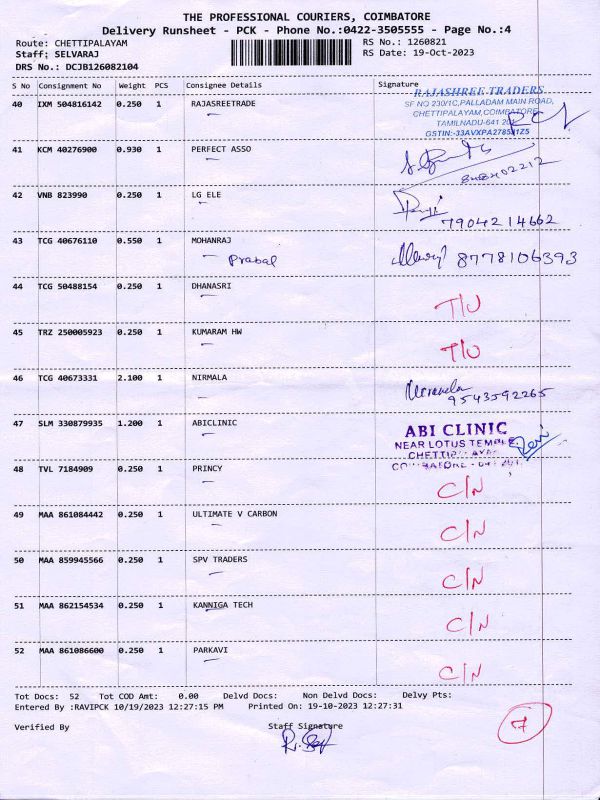 THE PROFESSIONAL COURIERS, COIMBATORE
Delivery Runsheet - PCK - Phone No.:0422-3505555 - Page No.:4
Route: CHETTIPALAYAM RS No.: 1260821
Staff: SELVARAJ RS Date: 19-Oct-2023
DRS No.: DCJB126082104
S No Consignment No Weight PCS Consignee Details Signature
40 IXM 504816142 0.250 1 RAJASREETRADE
RAJASHREE TRADERS
SF NO 230/1C,PALLADAM MAIN ROAD,
CHETTIPALAYAM,COIMBATORE
TAMILNADU-641 201
41 KCM 40276900 0.930 1 PERFECT ASSO
42 VNB 823990 0.250 1 LG ELE
7904214662
43 TCG 40676110 0.550 1 MOHANRAJ
Prabal 8778106393
44 TCG 50488154 0.250 1 DHANASRI
T/U
45 TRZ 250005923 0.250 1 KUMARAM HW
T/U
46 TCG 40673331 2.100 1 NIRMALA
9543592265
47 SLM 330879935 1.200 1 ABICLINIC
ABI CLINIC
NEAR LOTUS TEMPLE
48 TVL 7184909 0.250 1 PRINCY
C/N
49 MAA 861084442 0.250 1 ULTIMATE V CARBON
C/N
50 MAA 859945566 0.250 1 SPV TRADERS
C/N
51 MAA 862154534 0.250 1 KANNIGA TECH
C/N
52 MAA 861086600 0.250 1 PARKAVI
C/N
Tot Docs: 52 Tot COD Amt: 0.00 Delvd Docs: Non Delvd Docs: Delvy Pts:
Entered By :RAVIPCK 10/19/2023 12:27:15 PM Printed On: 19-10-2023 12:27:31
7
Verified By Staff Signature